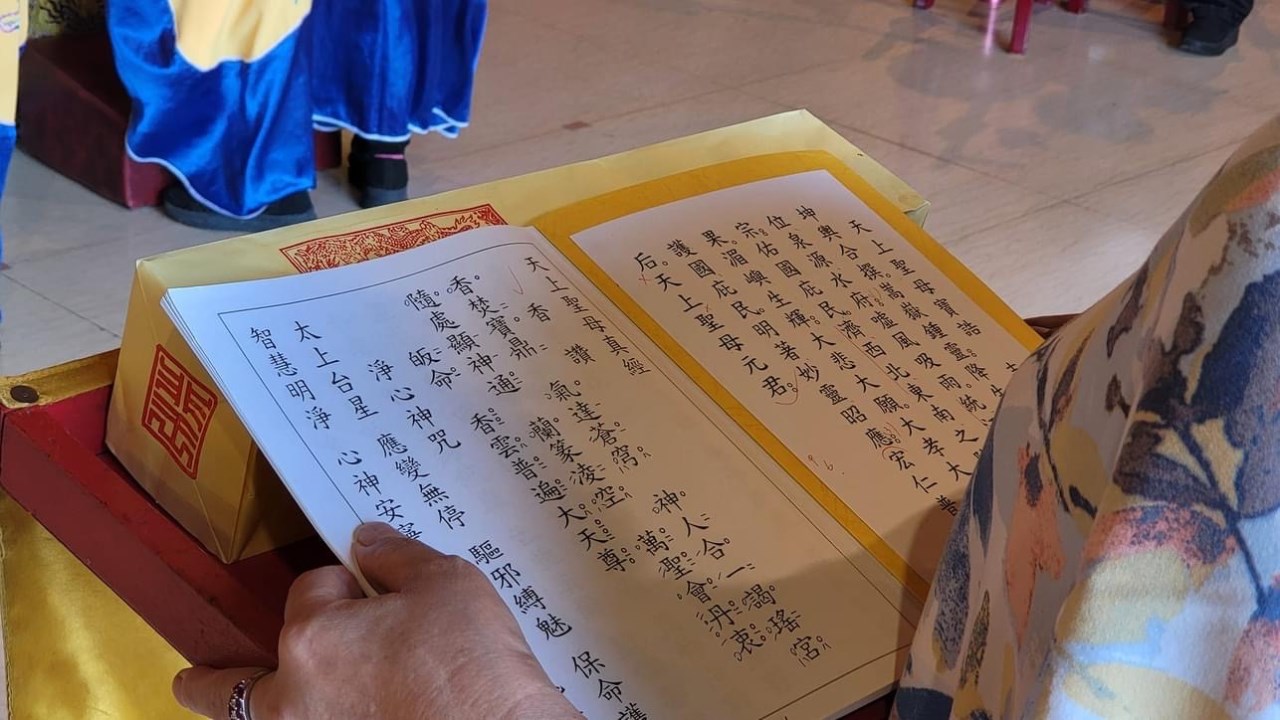 天上聖母寶誥
坤輿合撰。嵩嶽鍾靈。降
位泉源水府。噓風吸雨。統
宗。佑國庇民。濟西北東南之
果。湄嶼生輝。大悲大願。大孝大
護國庇民。明著妙靈昭應。宏仁普
后。天上聖母元君。
天上聖母真經
香讚
香焚寶鼎 氣達蒼穹 神人合一 謁瑤宮
隨處顯神通 蘭篆淩空 萬聖會丹衷
皈命 香雲普遍大天尊
淨心神咒
太上台星 應變無停 驅邪縛魅 保命護
智慧明淨 心神安寧